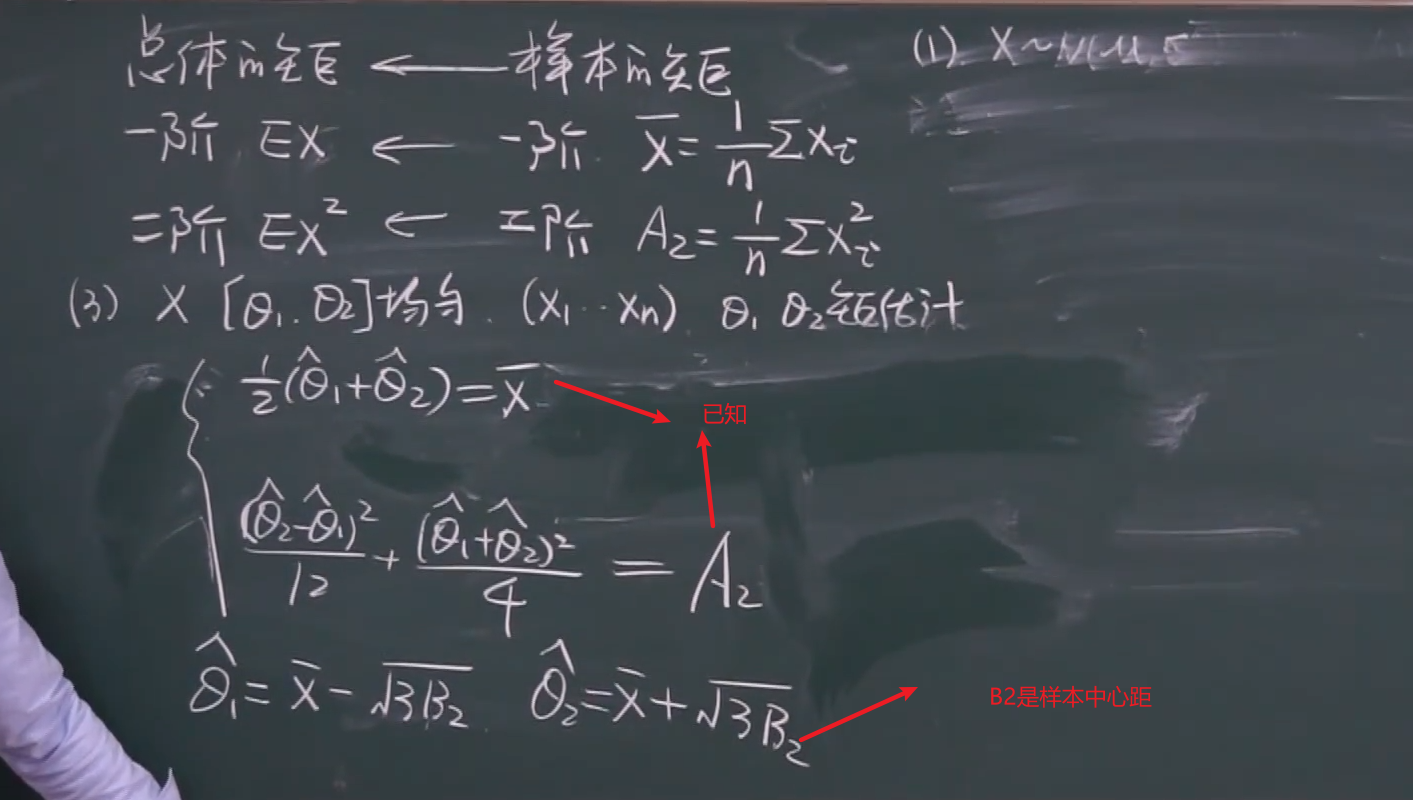 总体m̂矩 ← 样本m̂矩
(1) X~N(μ,
一阶 EX ← 一阶 X̄=1/n ΣXᵢ
二阶 EX² ← 二阶 A₂=1/n ΣXᵢ²
(3) X [θ₁.θ₂]均匀. (X₁…Xn) θ₁ θ₂矩估计
1/2(θ̂₁+θ̂₂)=X̄
已知
(θ̂₂-θ̂₁)²/12+(θ̂₁+θ̂₂)²/4=A₂
θ̂₁=X̄-√3B₂ θ̂₂=X̄+√3B₂
B2是样本中心距